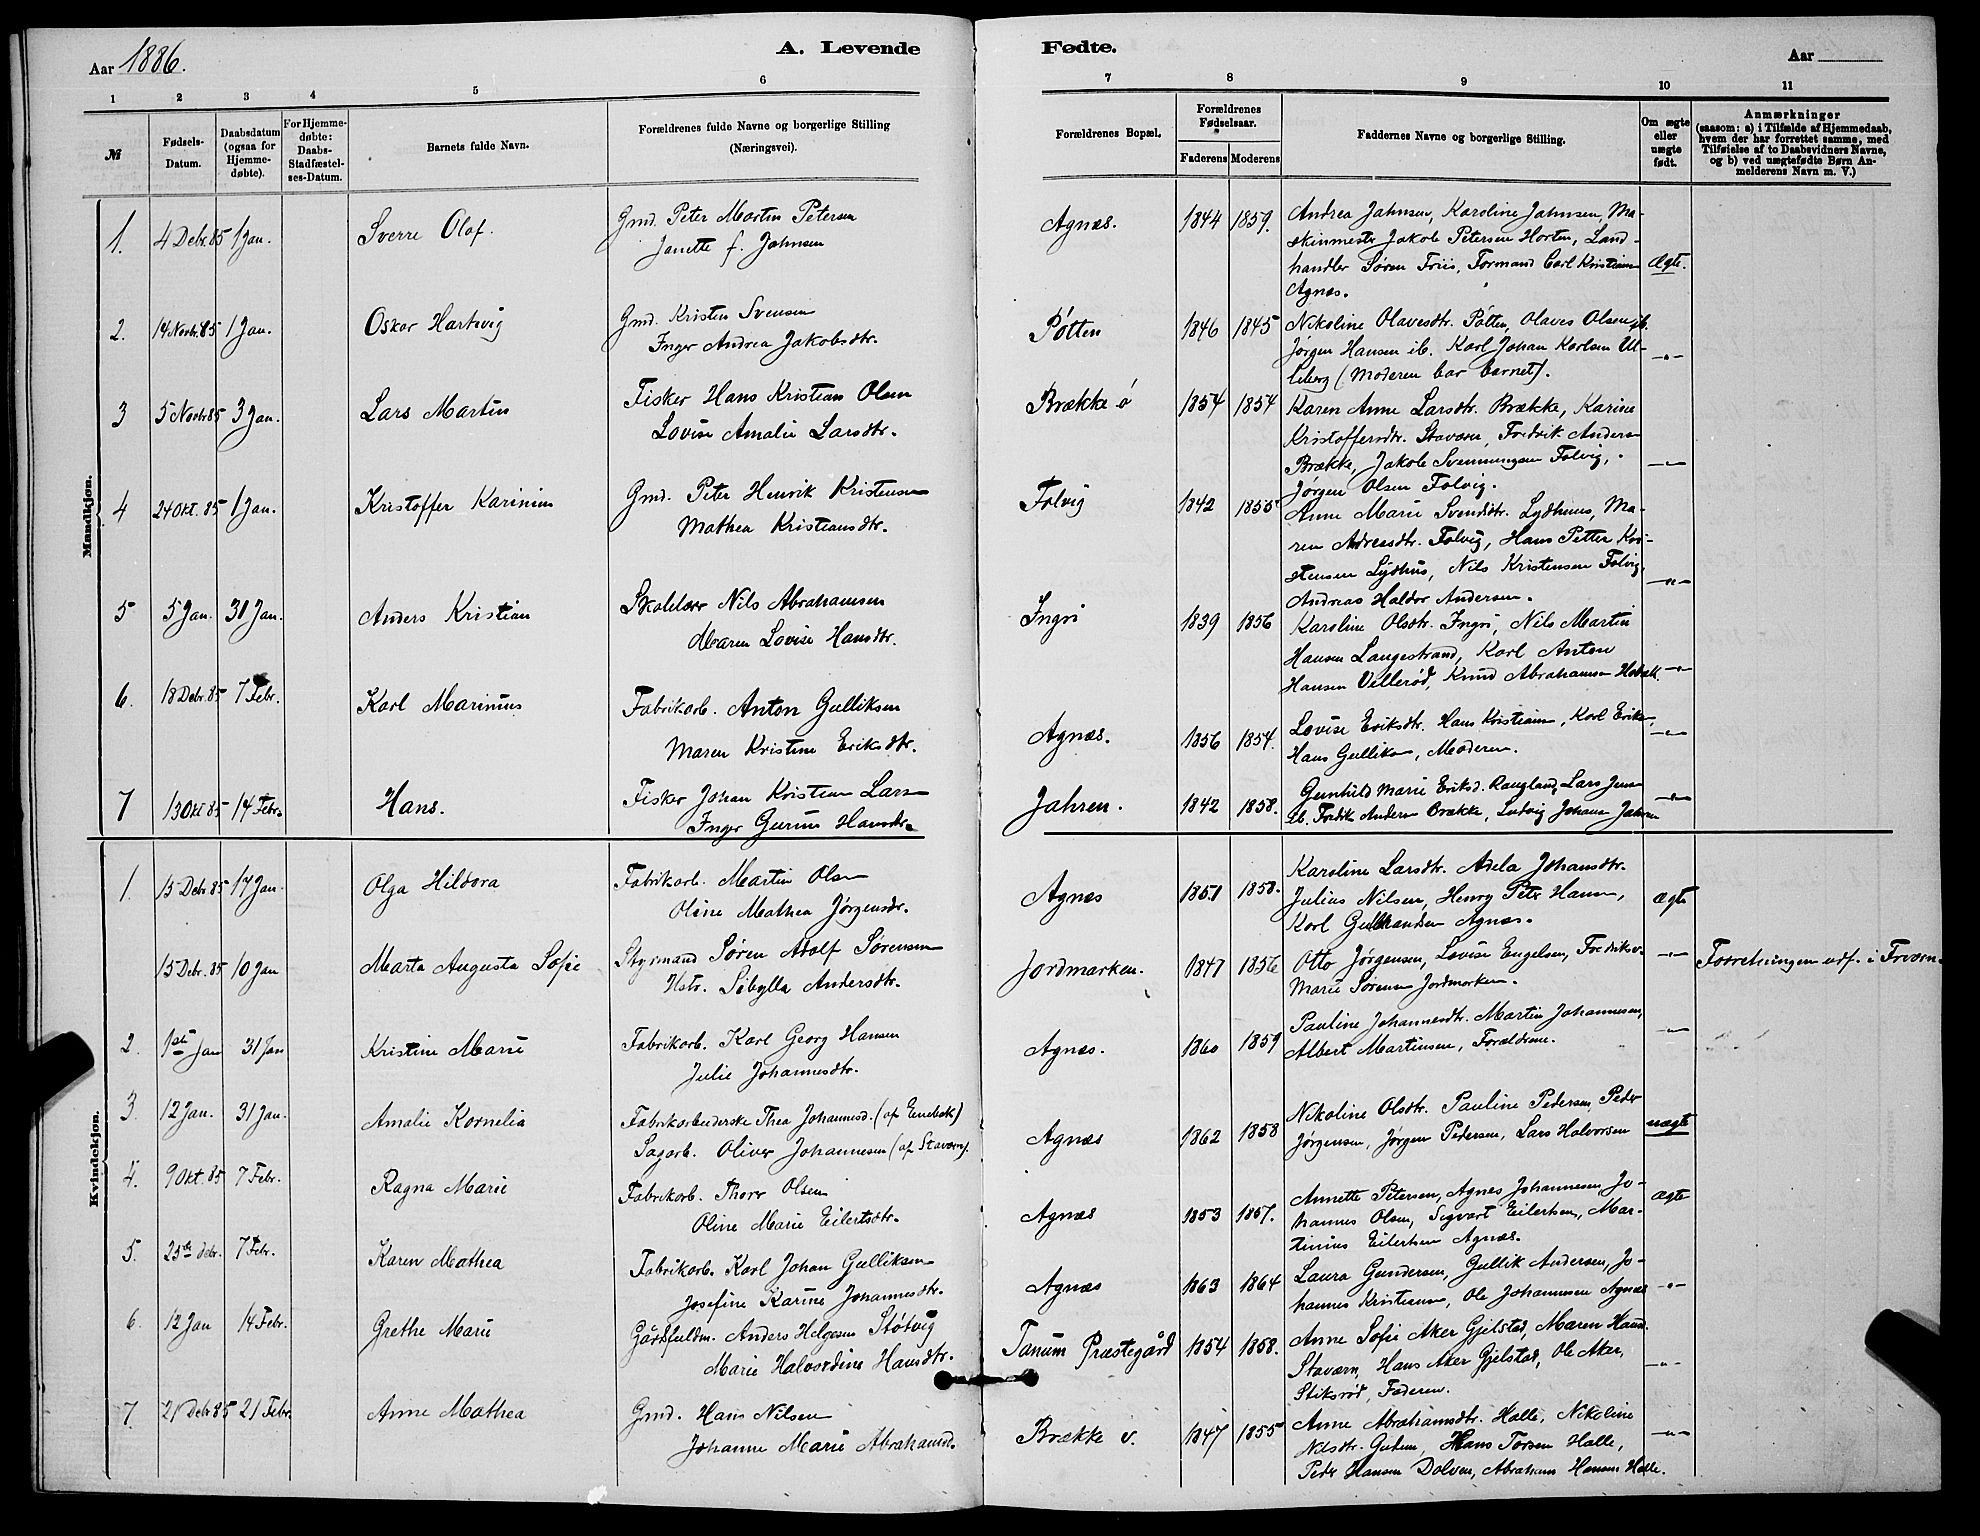 Aar 1886.
A. Levende
Fødte.
Aar
1 2 3 4 5 6 7 8 9 10 11
№
Fødsels-Datum.
Daabsdatum (ogsaa for Hjemme-døbte).
For Hjemme-døbte: Daabs-Stadfæstel-ses-Datum.
Barnets fulde Navn.
Forældrenes fulde Navne og borgerlige Stilling
(Næringsvei).
Forældrenes Bopæl.
Forældrenes Fødselsaar.
Faderens Moderens
Faddernes Navne og borgerlige Stilling.
Om ægte eller uægte født.
Anmærkninger
(saasom: a) i Tilfælde af Hjemmedaab,
hvem der har forrettet samme, med
Tilføielse af to Daabsvidners Navne,
og b) ved uægtefødte Børn An-
melderens Navn m. V.)
Mandkjøn.
1. 4 Debr. 85 1 Jan. Sverre Olaf.
Gmd. Peter Martin Petersen
Janette f. Johnsen
Agnæs. 1844 1859.
Andrea Jahnsen, Karoline Jahnsen, Ma-
skinmestr Jakob Petersen Horten, Land-
handler Søren Friis, Formand Carl Kristiansen
Agnæs.
Ægte.
2. 14 Novbr. 85 1 Jan. Oskar Hartvig
Gmd. Kristen Svensen
Inger Andrea Jakobsdtr.
Pøtten 1846 1845
Nikoline Olavesdtr. Pøtten, Olaves Olsen ib.
Jørgen Hansen ib. Karl Johan Karlsen Ul-
leberg (Moderen bar barnet).
-"-
3 5 Novbr. 85 3 Jan. Lars Martin
Fisker Hans Kristian Olsen
Lovise Amalie Larsdtr.
Brække ø 1854 1854
Karen Anne Larsdtr. Brække, Karine
Kristoffersdtr. Staværn, Fredrik Anders
Brække, Jakob Svenningsen Folvig,
Jørgen Olsen Folvig.
-"-
4 24 Okt. 85 1 Jan. Kristoffer Karinius
Gmd. Peter Henrik Kristensen
Mathea Kristiansdtr.
Folvig 1842 1855
Anne Marie Svendsdtr. Lydhuus, Ma-
ren Andreasdtr. Folvig, Hans Petter Kri-
stensen Lydhus, Nils Kristensen Folvig,
Andreas Haldor Andersen.
-"-
5 5 Jan. 31 Jan. Anders Kristian
Skolelær Nils Abrahamsen
Maren Lovise Hansdtr.
Ingri 1839 1856
Karoline Olsdtr. Ingri, Nils Martin
Hansen Langestrand, Karl Anton
Hansen Vellerød, Knud Abrahamsen
-"-
6. 18 Debr. 85 7 Febr. Karl Marinius
Fabrikarb. Anton Gulliksen
Maren Kristine Eriksdtr.
Agnæs. 1856 1854.
Lovise Eriksdtr. Hans Kristiansen, Karl Eriksen,
Hans Gulliksen, Moderen.
-"-
7 13 Okt 85 14 Febr. Hans.
Fisker Johan Kristian Larsen
Inger Gurine Hansdtr.
Jahren. 1842 1858.
Gunhild Marie Eriksd. Raugland Lars Jensen
ib. Fredrik Andersen Brække, Ludvig Johansen Jahren
-"-
Kvindekjøn.
1. 15 Debr. 85 17 Jan. Olga Hildora
Fabrikarb. Martin Olsen
Oline Mathea Jørgensdr.
Agnæs 1851 1858.
Karoline Larsdtr. Adela Johansdtr.
Julius Nilsen, Henry Petr Hansen,
Karl Gulbrandsen Agnæs.
ægte
15 Debr. 85 10 Jan Marta Augusta Sofie
Styrmand Søren Adolf Sørensen
Hstr. Sibylla Andersdtr.
Jordmarken. 1847 1856
Otto Jørgensen, Lovise Engelsen, Fredriksv.
Marie Sørensen Jordmarken.
-"-
Forretningen udf. i Frværn.
2. 1ste Jan 31 Jan Kristine Marie
Fabrikarb. Karl Georg Hansen
Julie Johannesdtr.
Agnæs. 1860 1859
Pauline Johannesdtr. Martin Johannesen,
Albert Martinsen, Forældrene.
-"-
3. 12 Jan. 31 Jan. Amalie Kornelia
Fabrikarbeiderske Thea Johannesd. (af Enebak)
Sagarb. Oliver Johannesen (af Stavern).
Agnæs 1862 1858
Nikoline Olsdtr. Pauline Pedersen, Pedr
Jørgensen, Jørgen Pedersen, Lars Halvorsen
uægte
4. 9 Okt. 85 7 Febr. Ragna Marie
Fabrikarb. Thorr Olsen
Oline Marie Eilertsdtr.
Agnæs 1853 1857.
Annette Petersen, Agnes Johannesen, Jo-
hannes Olsen, Sigvart Eilertsen, Mar-
tinius Eilertsen Agnæs.
ægte
5. 25de debr. 7 Febr. Karen Mathea
Fabrikarb. Karl Johan Gulliksen
Josefine Karine Johannesdtr.
Agnæs 1863 1864
Laura Gundersen, Gullik Andersen, Jo-
hannes Kristiansen, Ole Johannesen Agnæs
-"-
6. 12 Jan 14 Febr. Grethe Marie
Gårdfuldm. Anders Helgesen Støtvig
Marie Halvordine Hansdtr.
Tanum Præstegård 1854 1858.
Anne Sofie Aker Gjelstad, Maren Hansd.
Stavern, Hans Aker Gjelstad, Ole Aker,
Stiksrød, Faderen.
-"-
7 21 Debr 85 21 Febr. Anne Mathea
Gmd. Hans Nilsen
Johanne Marie Abrahamsd.
Brække v. 1847 1855
Anne Abrahamsdtr. Halle, Nikoline
Nilsdtr. Guten, Hans Torsen Halle,
Pedr Hansen Dolven, Abraham Hansen Halle.
-"-